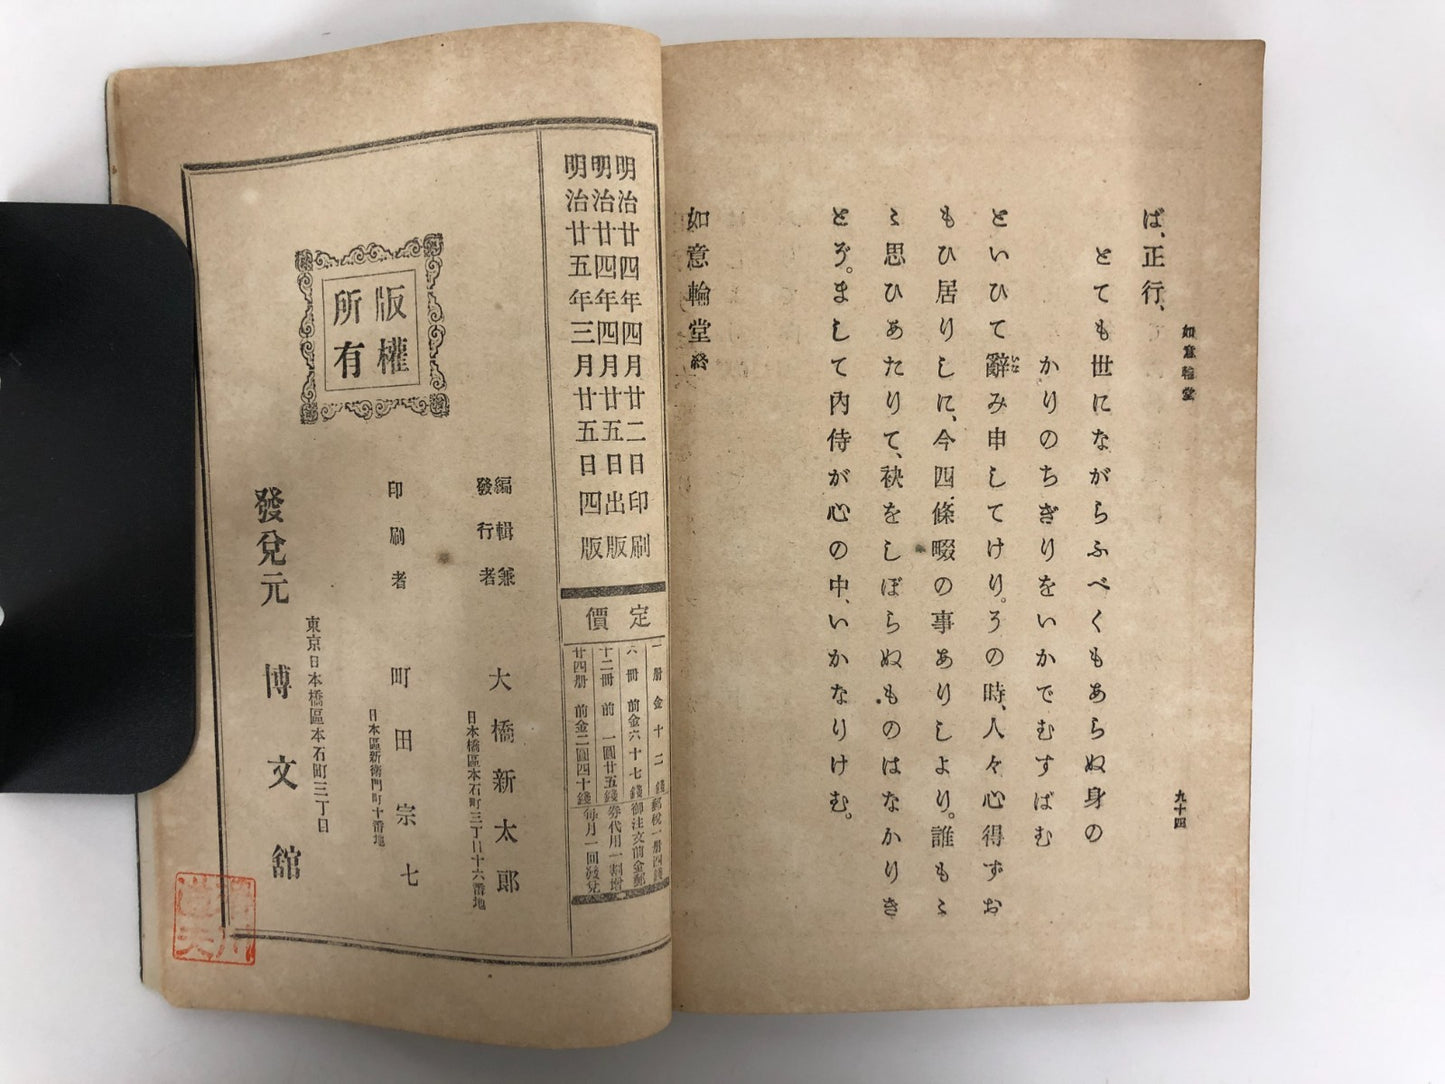 如意輪堂
九十四
ば、正行、
とても世にながらふべくもあらぬ身の
かりのちぎりをいかでむすばむ
といひて辭み申してけり。その時、人々心得ずお
もひ居りしに、今四條畷の事ありしより。誰もミ
ミ思ひあたりて、袂をしぼらぬものはなかりき
とぞ。まして内侍が心の中、いかなりけむ。
如意輪堂 終
明治廿四年四月廿二日印刷
明治廿四年四月廿五日出版
明治廿五年三月廿五日四版
定價
一册金十二錢
六册前金六十七錢
十二册前一圓廿五錢
廿四册前金二圓四十錢
郵稅一册四錢
御注文前金郵
券代用一割增
每月一回發兌
版權
所有
編輯兼
發行者
大橋新太郎
日本橋區本石町三丁目十六番地
印刷者
町田宗七
日本區新衛門町十番地
發兌元
東京日本橋區本石町三丁目
博文舘